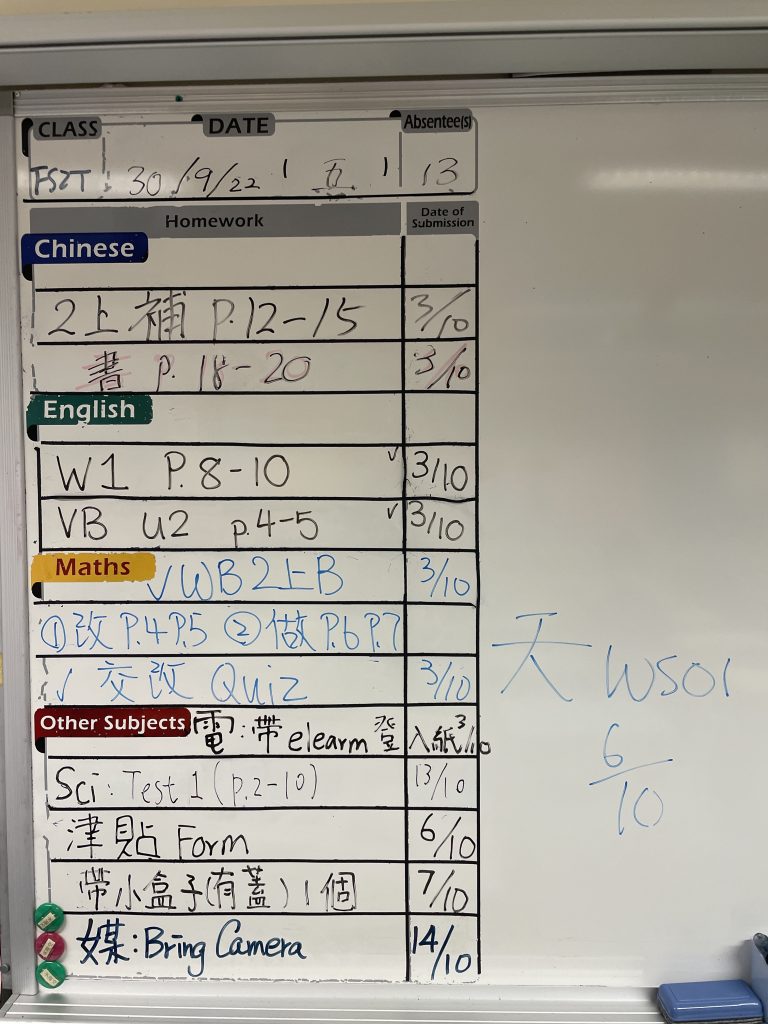 CLASS DATE Absentee(s)
FS2T 30/9/22 (五) 13
Homework Date of Submission
Chinese
2上補 P.12-15 3/10
書 P.18-20 3/10
English
W1 P.8-10 ✓ 3/10
VB U2 p.4-5 ✓ 3/10
Maths ✓WB2上B 3/10
①改 P.4 P.5 ②做 P.6 P.7
✓ 交改 Quiz 3/10
Other Subjects 電:帶elearm 登入紙 3/10
Sci: Test 1 (p.2-10) 13/10
津貼 Form 6/10
帶小盒子(有蓋) 1個 7/10
媒:Bring Camera 14/10
天 WS01
6/10